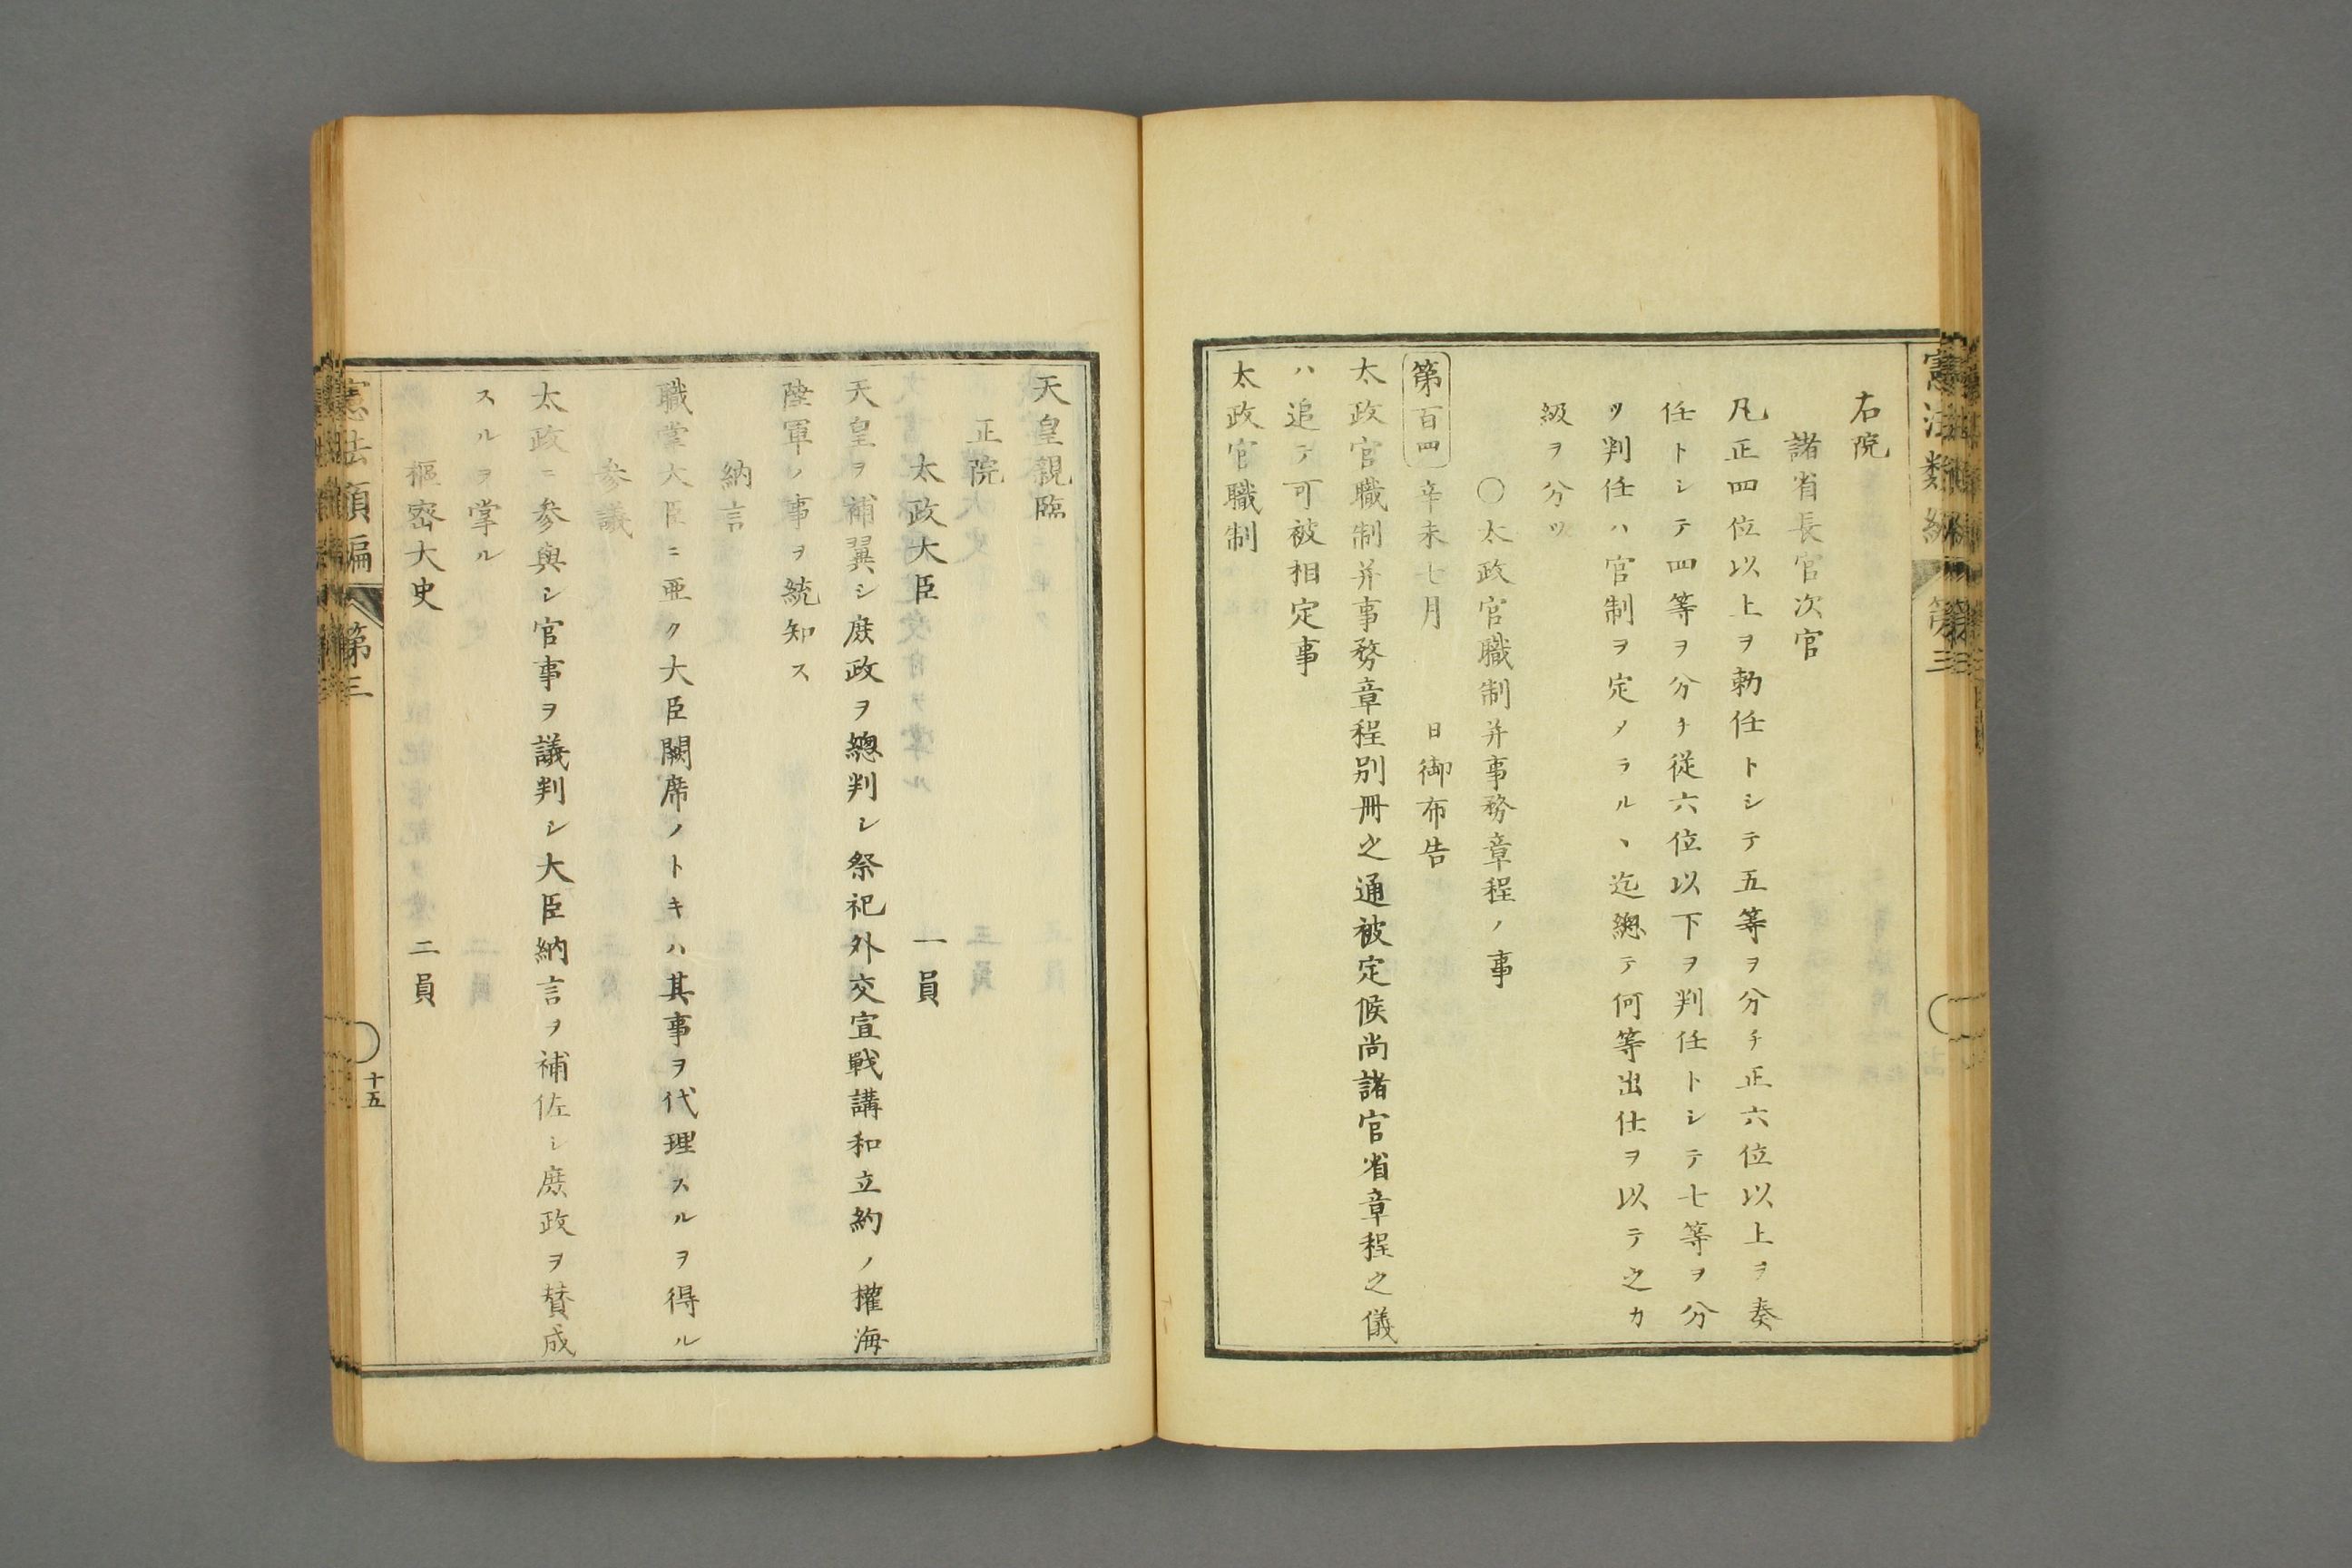 憲法類編 第三
右院
諸省長官次官
凡正四位以上ヲ勅任トシテ五等ヲ分チ正六位以上ヲ奏
任トシテ四等ヲ分チ従六位以下ヲ判任トシテ七等ヲ分
ツ判任ハ官制ヲ定メラルヽ迄總テ何等出仕ヲ以テ之カ
級ヲ分ツ
〇太政官職制并事務章程ノ事
第百四 辛未七月 日御布告
太政官職制并事務章程別冊之通被定候尚諸官省章程之儀
ハ追テ可被相定事
太政官職制
天皇親臨
正院
太政大臣 一員
天皇ヲ補翼シ庶政ヲ總判シ祭祀外交宣戰講和立約ノ權海
陸軍ノ事ヲ統知ス
納言
職掌大臣ニ亜ク大臣闕席ノトキハ其事ヲ代理スルヲ得ル
参議
太政ニ参與シ官事ヲ議判シ大臣納言ヲ補佐シ庶政ヲ賛成
スルヲ掌ル
樞密大史 二員
憲法類編 第三 十五